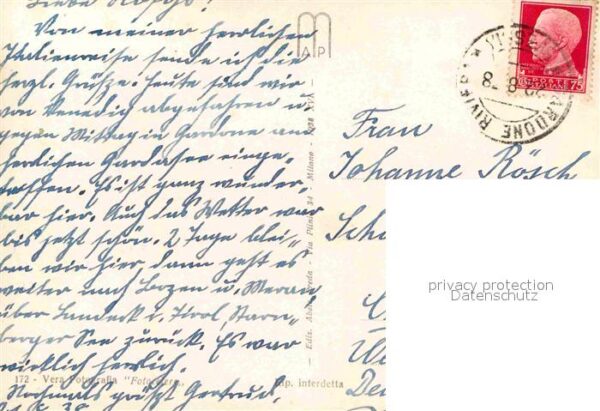 Von meiner herrlichen
Italienreise sende ich die
herzl. Grüße. Heute sind wir
von Venedig abgefahren u.
gegen Mittag in Gardone am
herrlichen Gardasee einge-
troffen. Es ist ganz wunder-
bar hier. Auch das Wetter war
bis jetzt schön. 2 Tage blei-
ben wir hier, dann geht es
weiter nach Bozen u. Meran
über Landeck i. Tirol, Starn-
berger See zurück. Es war
wirklich herrlich.
Nochmals grüßt Gertrud.
172 - Vera Fotografia "Foto
rip. interdetta
MAP
Ediz. Milano
POSTE ITALIANE
75
GARDONE RIVIERA
Frau
Johanne Rösch
privacy protection
Datenschutz